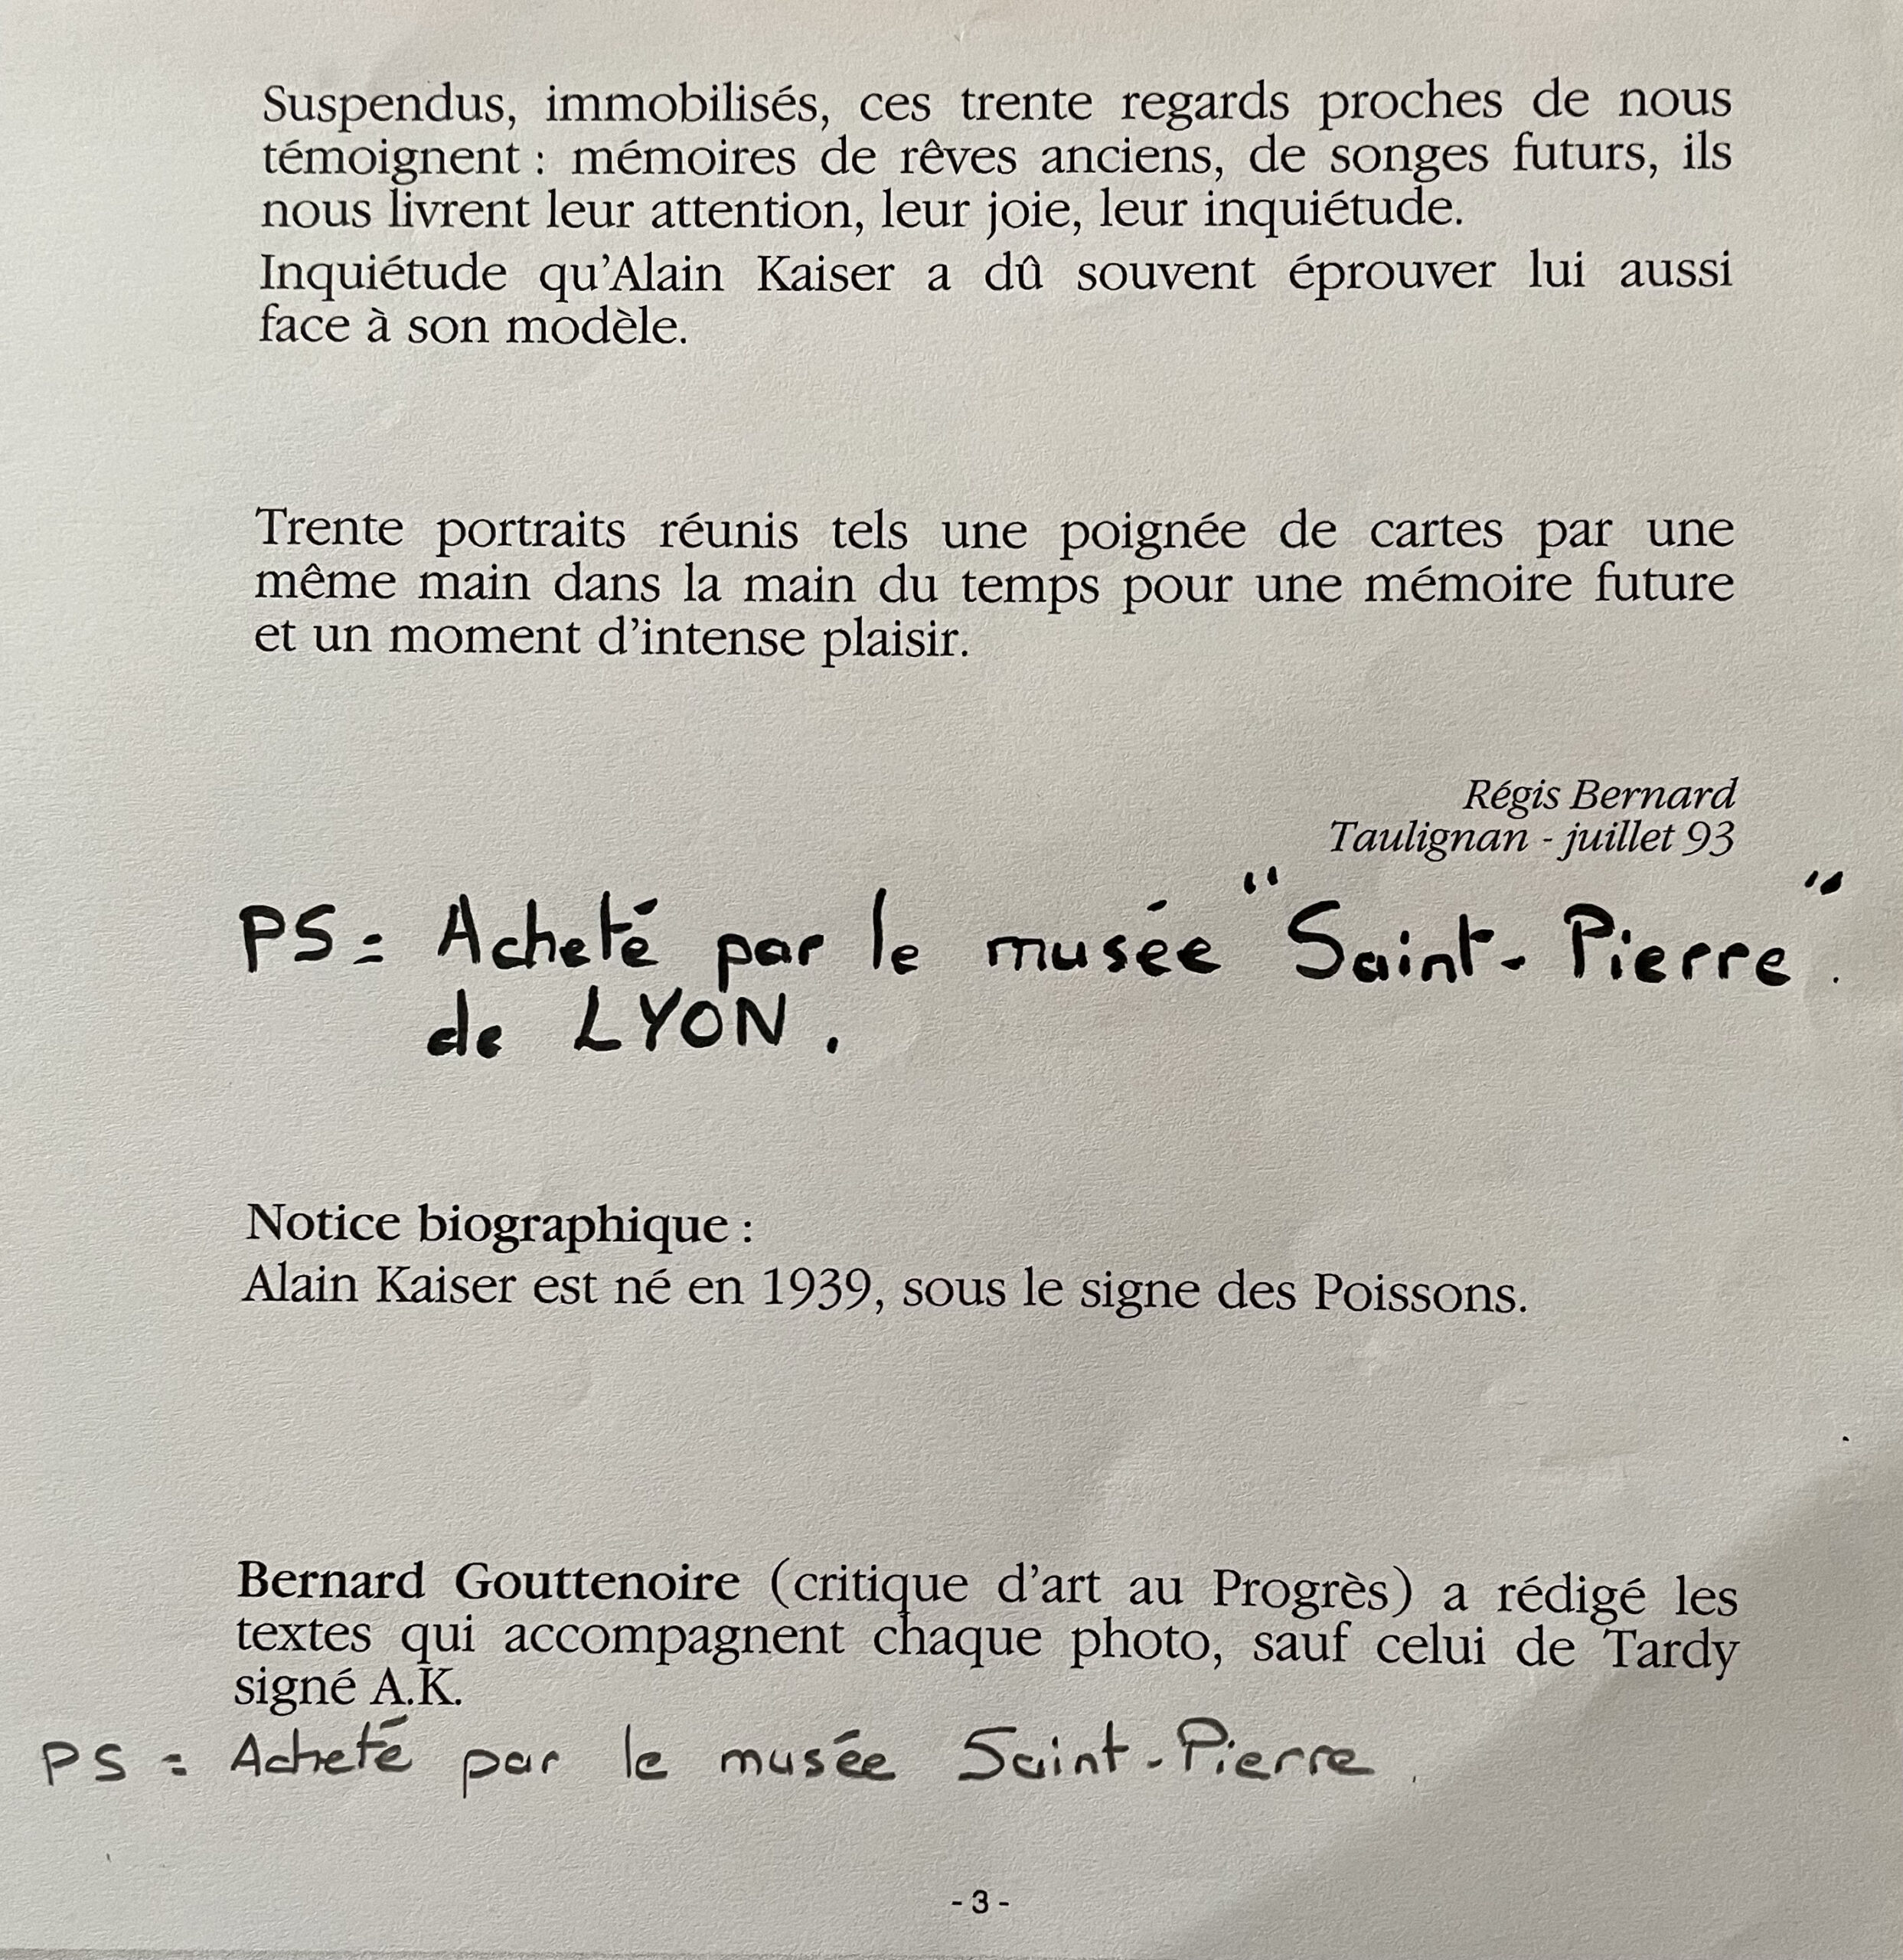 Suspendus, immobilisés, ces trente regards proches de nous
témoignent : mémoires de rêves anciens, de songes futurs, ils
nous livrent leur attention, leur joie, leur inquiétude.
Inquiétude qu'Alain Kaiser a dû souvent éprouver lui aussi
face à son modèle.
Trente portraits réunis tels une poignée de cartes par une
même main dans la main du temps pour une mémoire future
et un moment d'intense plaisir.
Régis Bernard
Taulignan - juillet 93
PS = Acheté par le musée "Saint-Pierre".
de LYON.
Notice biographique :
Alain Kaiser est né en 1939, sous le signe des Poissons.
Bernard Gouttenoire (critique d'art au Progrès) a rédigé les
textes qui accompagnent chaque photo, sauf celui de Tardy
signé A.K.
PS = Acheté par le musée Saint-Pierre.
- 3 -